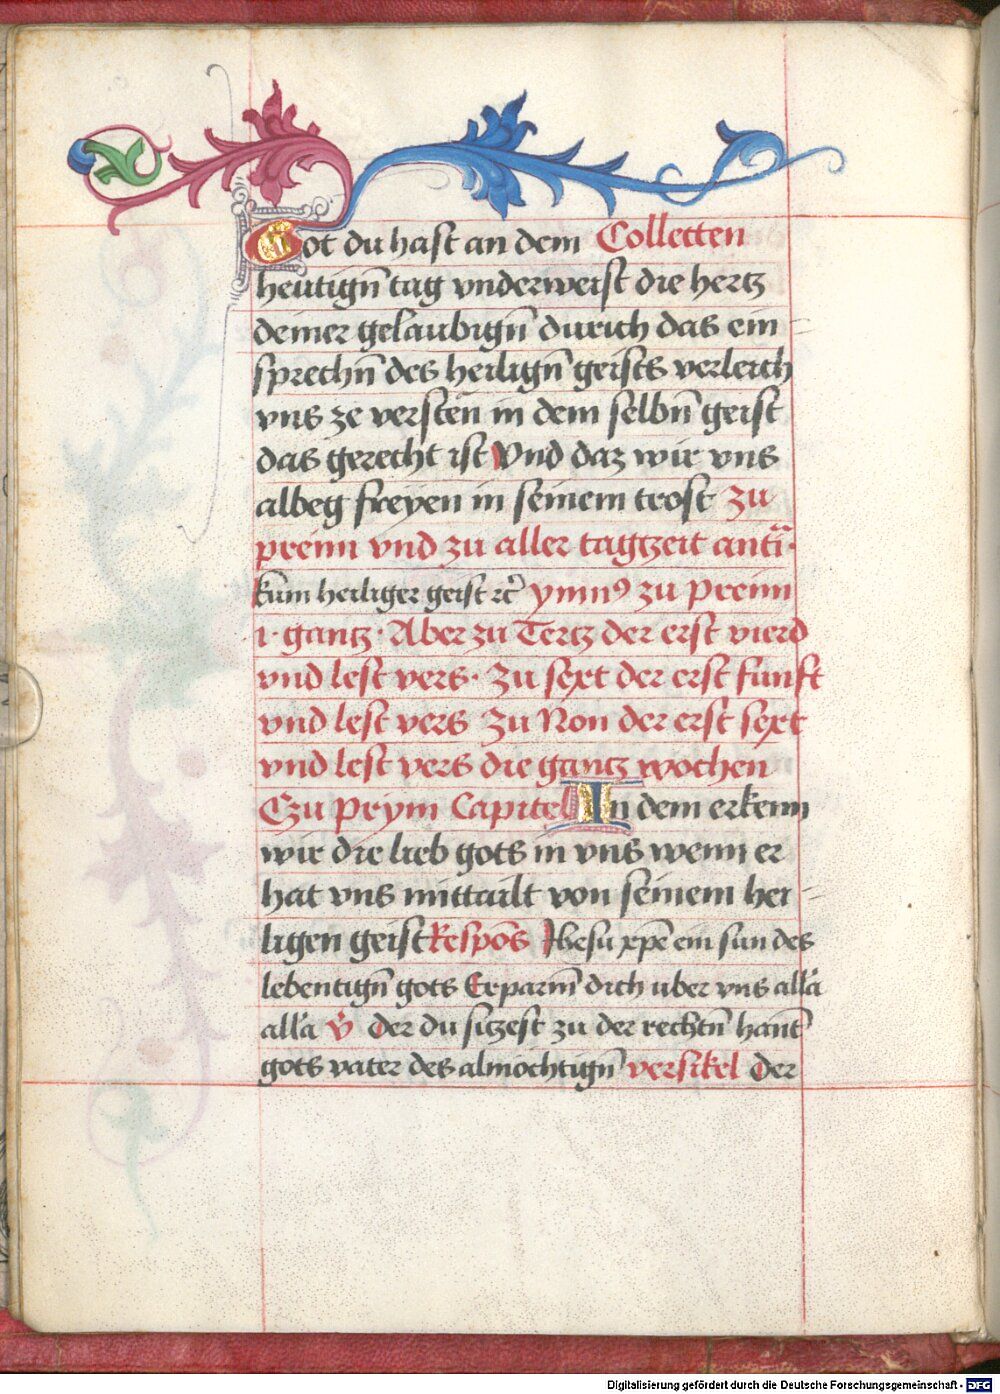 Got du hast an dem Colletten
heutign̄ tag vnderweist die hertz
deiner gelaubign̄ durich das ein-
sprechn̄ des heilign̄ geists verleich
vns ze versten in dem selbn̄ geist
das gerecht ist Vnd daz wir vns
albeg freyen in seinem trost Zu
preim vnd zu aller tagtzeit anti·
kum heiliger geist ꝛc̄ ymnꝰ zu preim
i· gantz· Aber zu Tertz der erst vierd
vnd lest vers· Zu sext der erst funft
vnd lest vers Zu Non der erst sext
vnd lest vers die gantz wochen
Czu Prym Capitel In dem erkenn
wir die lieb gots in vns wenn er
hat vns mittailt von seinem hei-
ligen geist Respōs Jhesu xp̄e ein sun des
lebentign̄ gots Erparm̄ dich uber vns all'a
all'a v̄ Der du sitzest zu der rechtn̄ hant
gots vater des almochtign̄ versikel Der
Digitalisierung gefördert durch die Deutsche Forschungsgemeinschaft - DFG